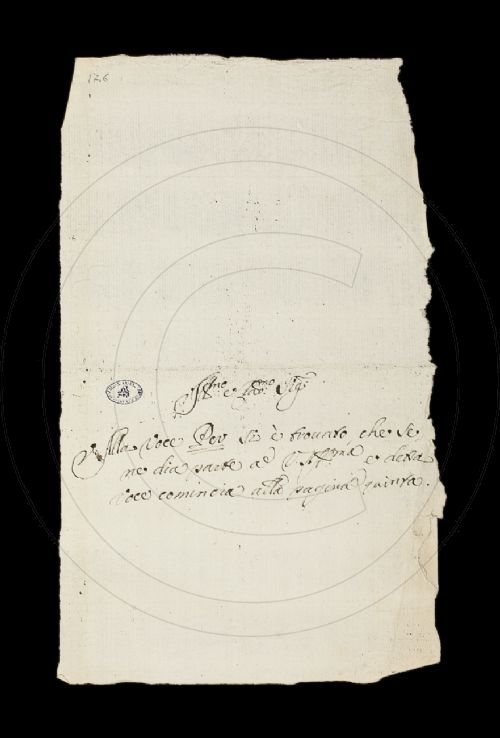 176
Ill.mo e Sig.r
Alla voce Per si è trouato che se
ne dia parte a V.S. Ill.ma e detta
voce comincia alla pagina quinta.